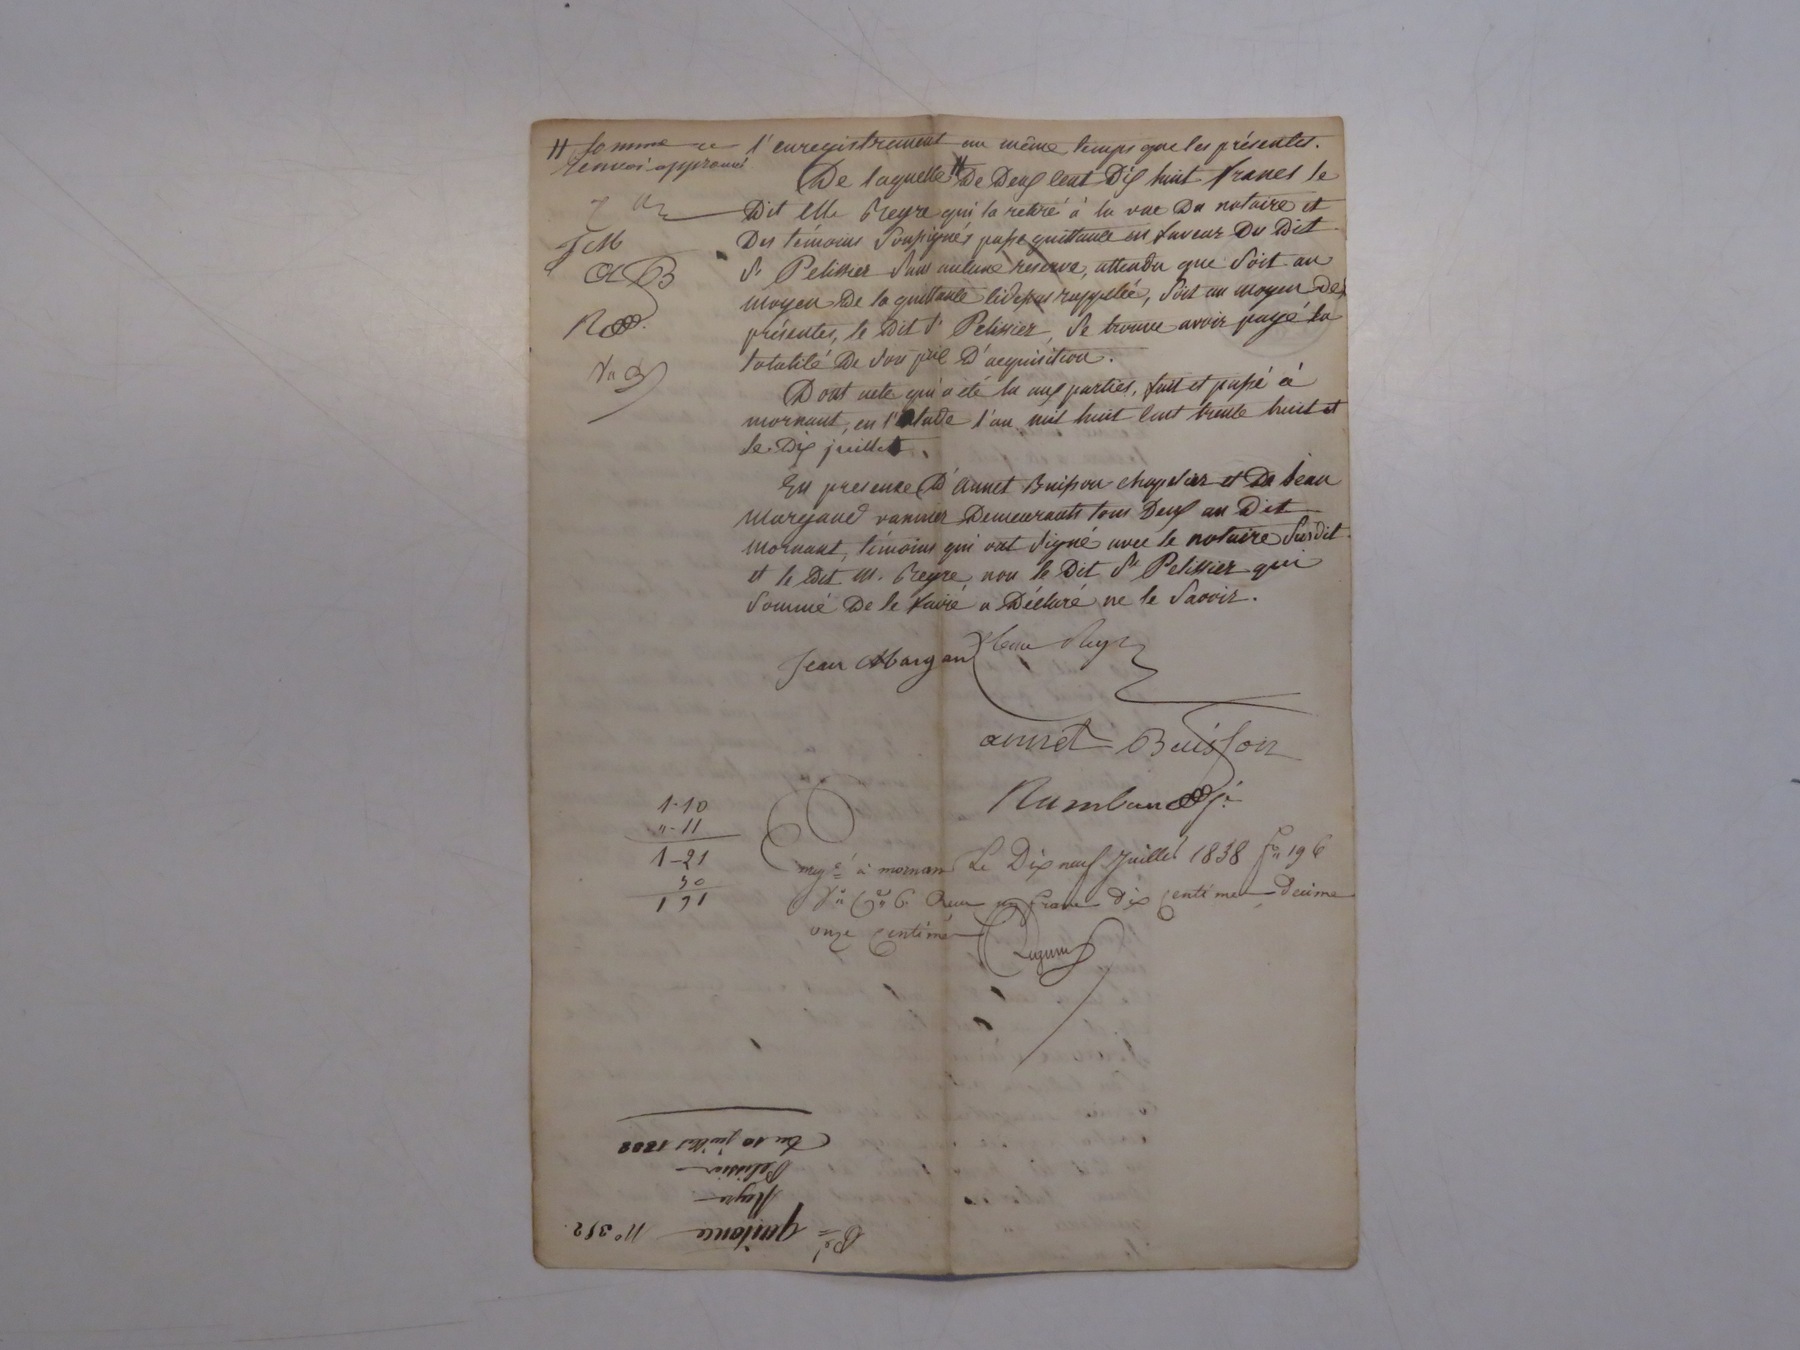 # Somme
renvoi approuvé
JM
AB
l'enregistrement en même temps que les présentes.
De laquelle # De Deux cent Dix huit francs le
Dit Mr Reyre qui l'a retiré à la vue Du notaire et
Des témoins Soussignés passe quittance en faveur Du Dit
Sr Pelissier Sans aucune reserve, attendu que Soit au
moyen De la quittance cidessus rappellée, Soit au moyen Des
présentes, le Dit Sr Pelissier, Se trouve avoir payé la
totalité De Son prix D'acquisition.
Dont acte qui a été lu aux parties, fait et passé à
mornant, en l'Etude l'an mil huit Cent trente huit et
le Dix juillet.
En presence D'annet Buisson chapelier et De Jean
Margand vannier Demeurants tous Deux au Dit
mornant, témoins qui ont Signé avec le notaire Susdit
et le Dit M. Reyre, non le Dit Sr Pelissier qui
Sommé De le faire a Déclaré ne le Savoir.
Jean Margand
annet Buisson
1-10
"-11
1-21
Enregé à mornant Le Dix neuf Juillet 1838 fo 196
Vo Ce 6 Recu un franc Dix Centimes Decime
onze Centimes
quitance No 352.
Reyre
Pelissier
Du 10 juillet 1838